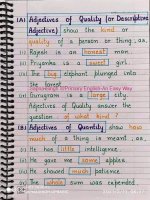 (A) Adjectives of Quality (or Descriptive
Adjective) show the kind or
quality of a person or thing, as,
(i) Rajesh is an honest man.
(ii) Priyanka is a sweet girl.
(iii) The big elephant plunged into
the forest.
(iv) Gurugram is a large city.
Adjectives of Quality answer the
question of what kind?
(B) Adjectives of Quantity show how
much of a thing is meant; as,
(i) He has little intelligence.
(ii) He gave me some apples.
(iii) He showed much patience.
(iv) The whole sum was expended.